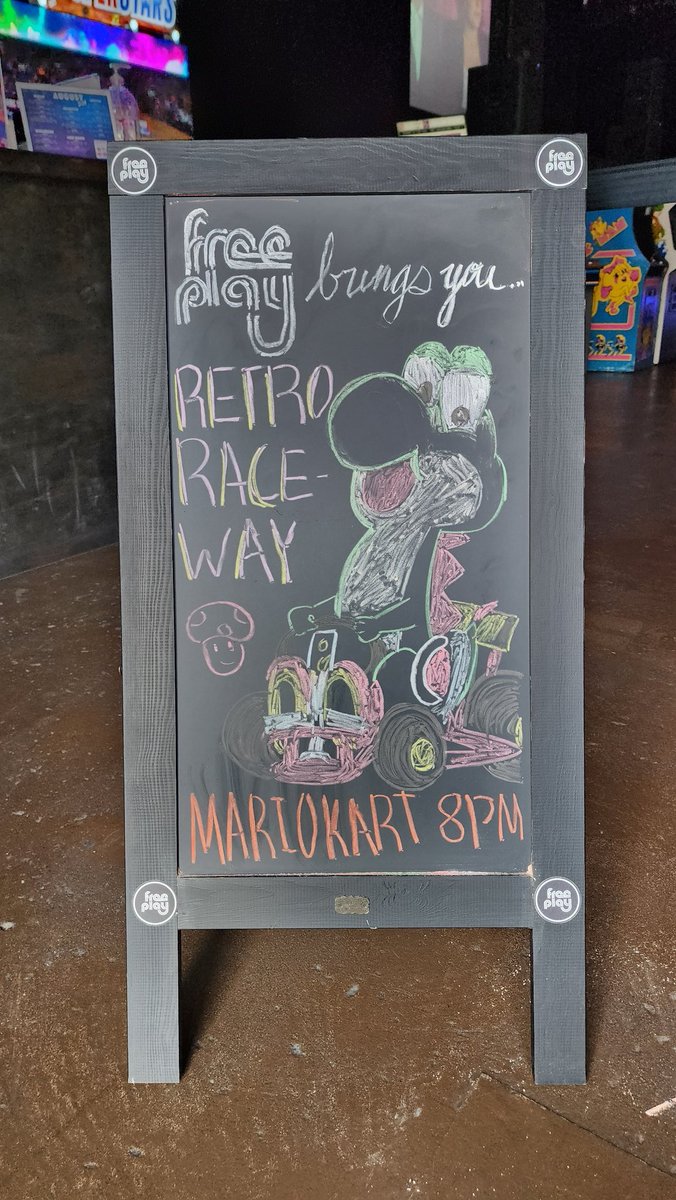 ERSTARS
AUGUST
free play
free play
free
play
brings you...
RETRO
RACE-
WAY
MARIOKART 8PM
free play
free play